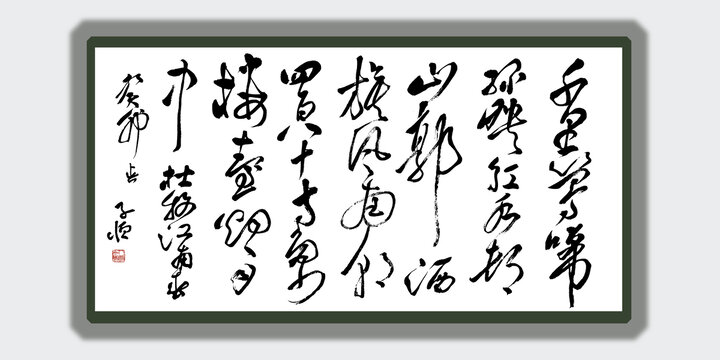 千里莺啼
绿映红水村
山郭酒
旗风南朝
四百八十寺多少
楼臺烟雨
中 杜牧江南春
癸卯 子恒